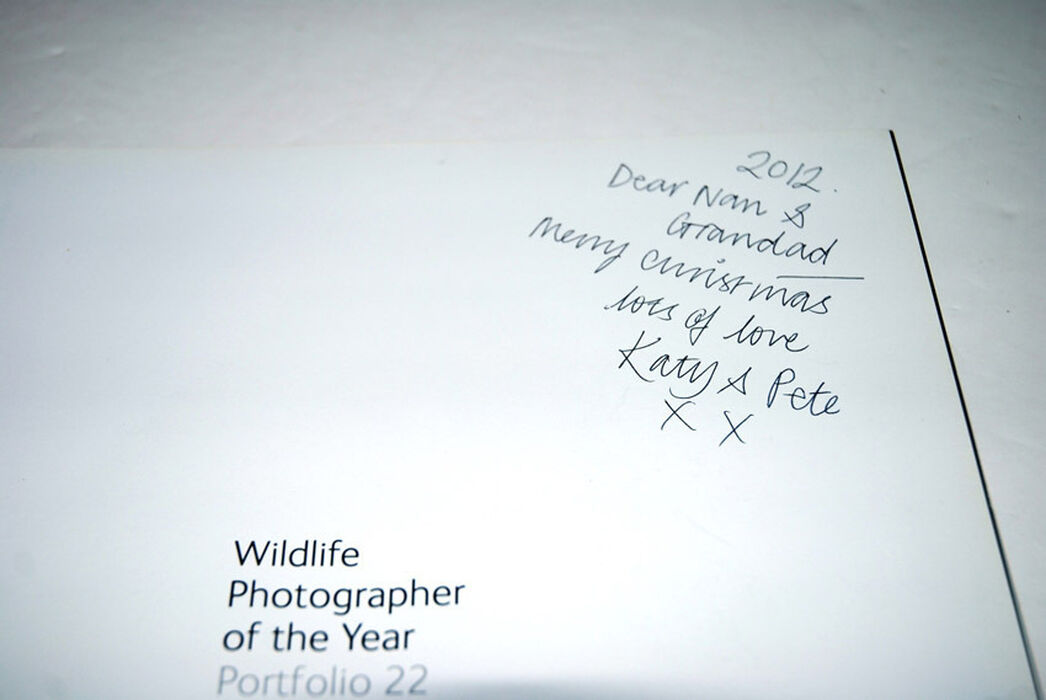 2012.
Dear Nan &
Grandad
Merry christmas
lots of love
Katy & Pete
X X
Wildlife
Photographer
of the Year
Portfolio 22